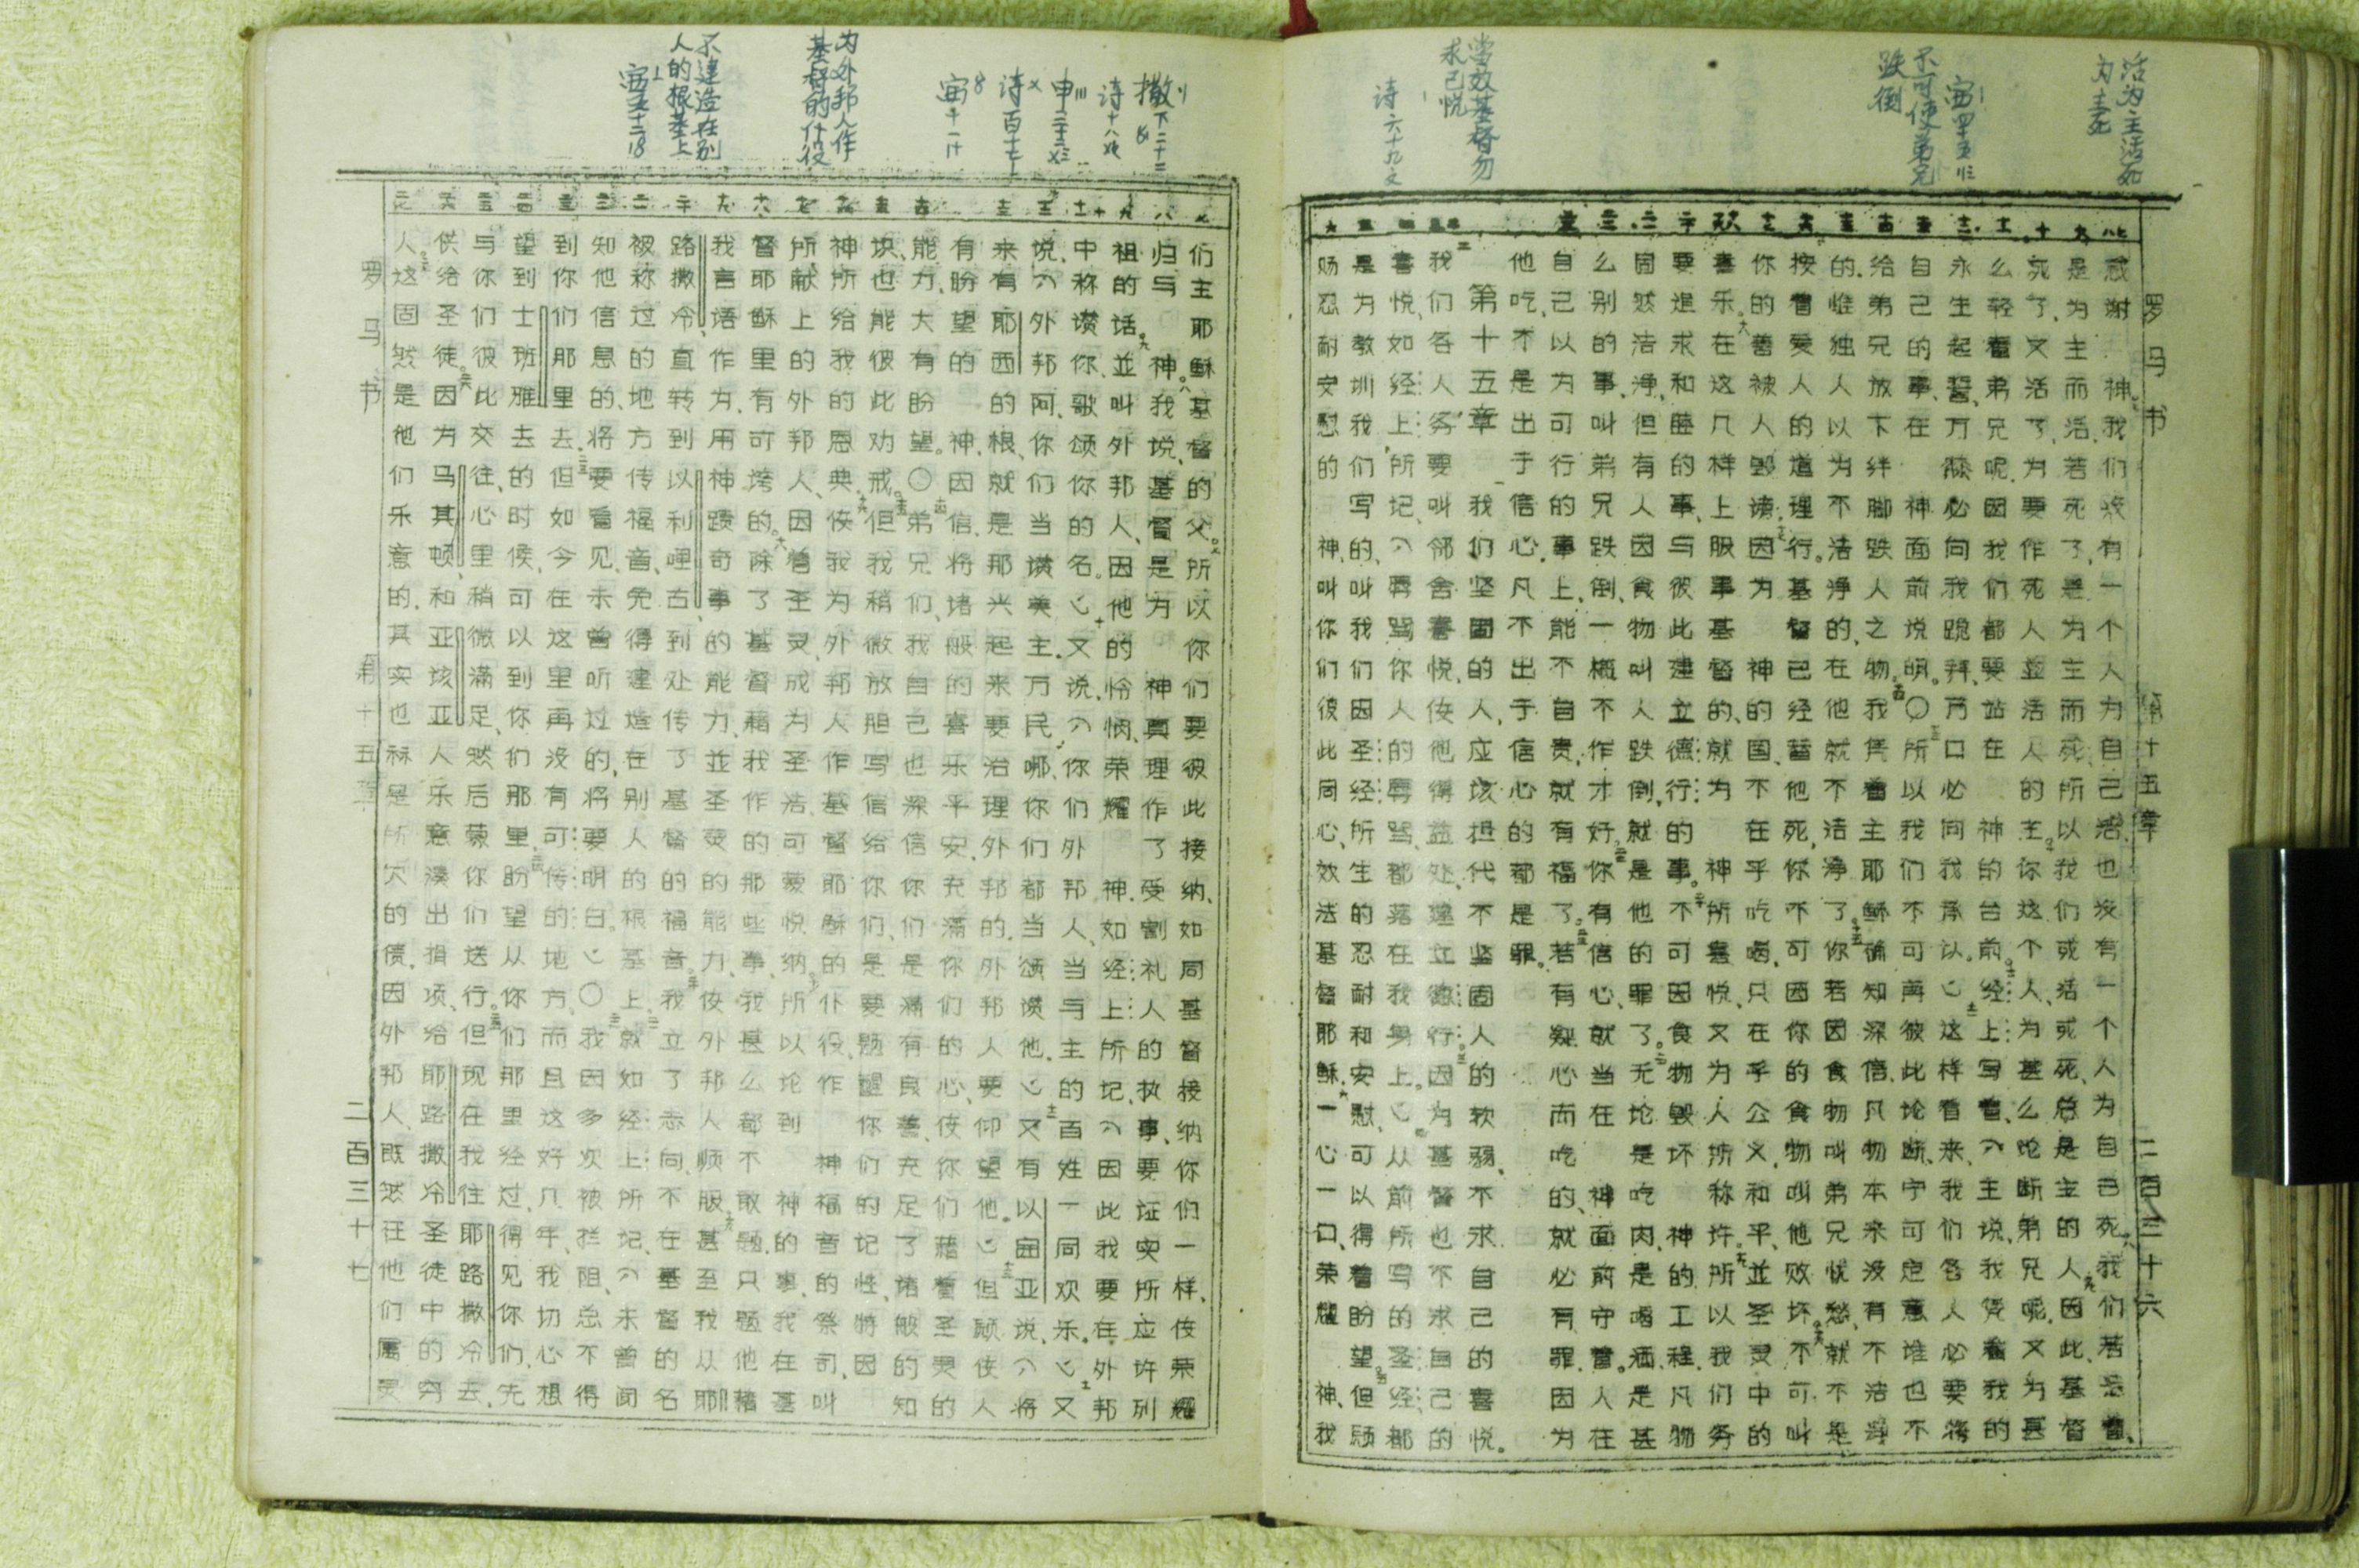 活为主活死
为主死
赛四十五23
不可使弟兄
跌倒
当效基督勿
求己悦
诗六十九9
罗马书 第十五章 二百三十六
感谢 神。我们没有一个人为自己活、也没有一个人为自己死。我们若是活着、
是为主而活、若死了、是为主而死、所以我们或活或死、总是主的人。因此、基督
死了、又活了、为要作死人並活人的主。你这个人、为甚么论断弟兄呢、又为甚
么轻看弟兄呢、因我们都要站在 神的台前。经上写着、主说、我凭着我的
永生起誓、万膝必向我跪拜、万口必向我承认。这样看来、我们各人必要将
自己的事、在 神面前说明。〇所以我们不可再彼此论断、宁可定意谁也不
给弟兄放下绊脚跌人之物。我凭着主耶稣确知深信、凡物本来没有不洁净
的、惟独人以为不洁净的、在他就不洁净了。你若因食物叫弟兄忧愁、就不是
按着爱人的道理行。基督已经替他死、你不可因你的食物叫他败坏。不可叫
你的善被人毁谤、因为 神的国、不在乎吃喝、只在乎公义、和平、並圣灵中的
喜乐。在这几样上服事基督的、就为 神所喜悦、又为人所称许。所以我们务
要追求和睦的事、与彼此建立德行的事。不可因食物毁坏 神的工程、凡物
固然洁净、但有人因食物叫人跌倒、就是他的罪了。无论是吃肉、是喝酒、是甚
么别的事、叫弟兄跌倒、一概不作才好。你有信心、就当在 神面前守着。人在
自己以为可行的事上、能不自责、就有福了。若有疑心而吃的、就必有罪、因为
他吃、不是出于信心、凡不出于信心的都是罪。
第十五章 我们坚固的人、应该担代不坚固人的软弱、不求自己的喜悦。
我们各人务要叫邻舍喜悦、使他得益处、建立德行。因为基督也不求自己的
喜悦、如经上所记、辱骂你人的辱骂都落在我身上。从前所写的圣经都
是为教训我们写的、叫我们因圣经所生的忍耐和安慰、可以得着盼望。但愿
赐忍耐安慰的 神、叫你们彼此同心、效法基督耶稣。一心一口、荣耀 神、我
撒下二十二
诗十八
申三十二
诗百十七
赛十一
为外邦人作
基督的仆役
不建造在别
人的根基上
赛五十二
们主耶稣基督的父。所以你们要彼此接纳、如同基督接纳你们一样、使荣耀
归与 神。我说、基督是为 神真理作了受割礼人的执事、要证实所应许列
祖的话、並叫外邦人、因他的怜悯、荣耀 神、如经上所记、因此我要在外邦
中称赞你、歌颂你的名。又说、你们外邦人、当与主的百姓一同欢乐。又
说、外邦阿、你们当赞美主、万民哪、你们都当颂赞他。又有以赛亚说、将
来有耶西的根、就是那兴起来要治理外邦的、外邦人要仰望他。但愿使人
有盼望的 神、因信将诸般的喜乐平安、充满你们的心、使你们藉着圣灵的
能力、大有盼望。〇弟兄们、我自己也深信你们是满有良善、充足了诸般的知
识、也能彼此劝戒。但我稍微放胆写信给你们、是要题醒你们的记性、特因
神所给我的恩典、使我为外邦人作基督耶稣的仆役、作 神福音的祭司、叫
所献上的外邦人、因着圣灵、成为圣洁、可蒙悦纳。所以论到 神的事、我在基
督耶稣里有可夸的。除了基督藉我作的那些事、我甚么都不敢题、只题他藉
我言语作为、用神蹟奇事的能力、並圣灵的能力、使外邦人顺服。甚至我从耶
路撒冷、直转到以利哩古、到处传了基督的福音。我立了志向、不在基督的名
被称过的地方传福音、免得建造在别人的根基上。就如经上所记、未曾闻
知他信息的、将要看见、未曾听过的、将要明白。〇我因多次被拦阻、总不得
到你们那里去。但如今在这里再没有可传的地方、而且这好几年、我切心想
望到士班雅去的时候、可以到你们那里、盼望从你们那里经过、得见你们、先
与你们彼此交往、心里稍微满足、然后蒙你们送行。但现在我往耶路撒冷去、
供给圣徒。因为马其顿、和亚该亚人乐意凑出捐项、给耶路撒冷圣徒中的穷
人。这固然是他们乐意的、其实也算是所欠的债、因外邦人、既然在他们属灵
罗马书 第十五章 二百三十七